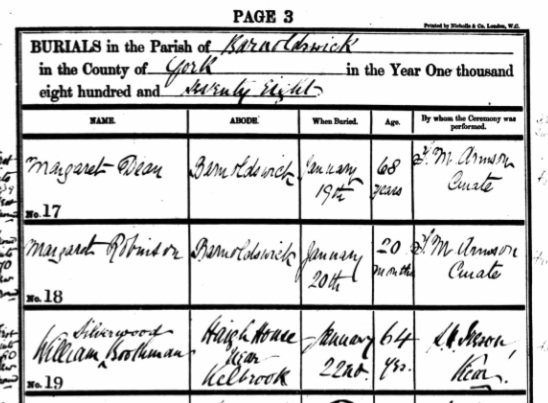 PAGE 3
Printed by Nichols & Co. London, W.C.
BURIALS in the Parish of Barnoldswick
in the County of York in the Year One thousand
eight hundred and seventy Eight
NAME. ABODE. When Buried. Age. By whom the Ceremony was performed.
Margaret Dean
No. 17
Barnoldswick
January
19th
68
years
F. M. Armson
Curate
Margaret Robinson
No. 18
Barnoldswick
January
20th
20
months
F. M. Armson
Curate
Silverwood
William ^ Boothman
No. 19
Haigh House
near
Kelbrook
January
22nd.
64
yrs.
Vicar.